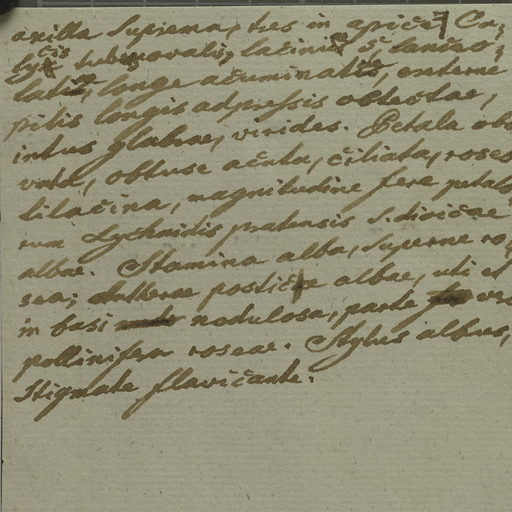 axilla suprema, tres in apice. Ca,
lycis tubo ovali, laciniis 5 lanceo,
latis, longe acuminatis, externe
pilis longis adpressis obtectae,
intus glabrae, virides. Petala obo
vata, obtuse acuta, ciliata, roseo
lilacina, magnitudine fere petalo
rum Lychnidis pratensis s. dioicae
albae. Stamina alba, superne ro,
sea; Antherae posticae albae, uti et
in basi nodulosa, parte vero
pollinifera roseae. Stylus albus,
stigmate flavicante.